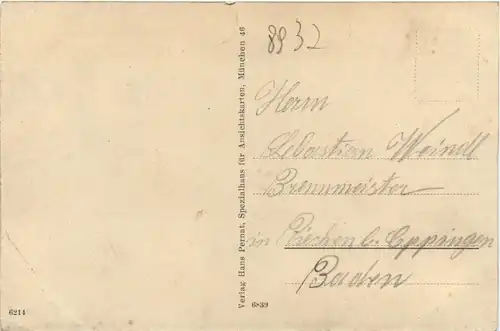 8932
Herrn
Sebastian Weindl
Brennmeister
in b. Eppingen
Baden
Verlag Hans Pernat, Spezialhaus für Ansichtskarten, München 46
6214
6839